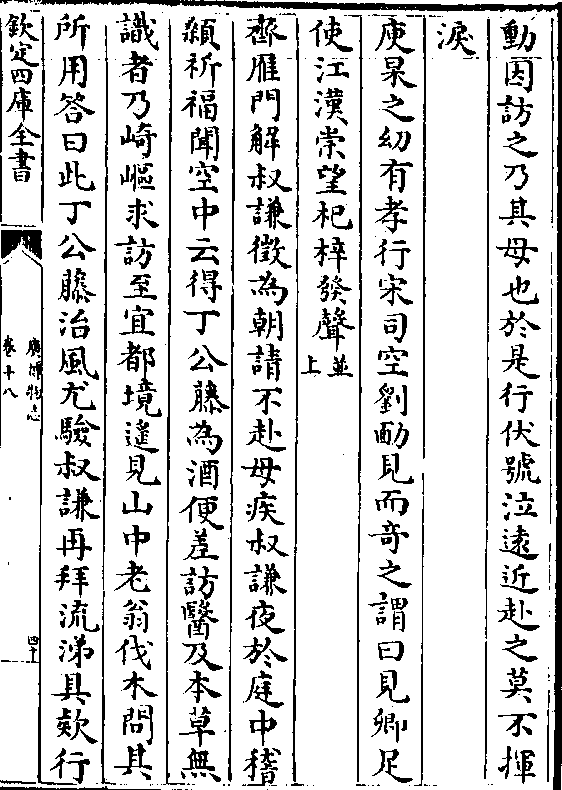 動因訪之乃其母也於是行伏號泣遠近赴之莫不揮
淚
庾杲之幼有孝行宋司空劉勔見而奇之謂曰見卿足
使江漢崇望杞梓發聲並上
齊雁門解叔謙徵為朝請不赴母疾叔謙夜於庭中稽
顙祈福聞空中云得丁公藤為酒便差訪醫及本草無
識者乃崎嶇求訪至宜都境遙見山中老翁伐木問其
所用答曰此丁公藤治風尤驗叔謙再拜流涕具欵行
欽定四庫全書
廣博物志
卷十八
四十